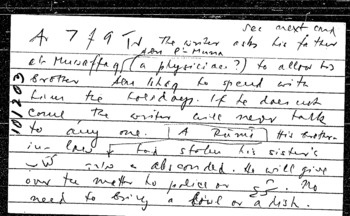 see next card
A 779 IV The writer asks his father
Abu l-Muna
el Muwaffaq (a physician?) to allow his
brother Abu to spend with
him the holidays. If he does not
come the writer will never talk
to any one. A Rumi his brother-
in-law had stolen his sister's
and absconded. He will give
over the matter to police or No
need to bring a bowl or a dish.
10/203